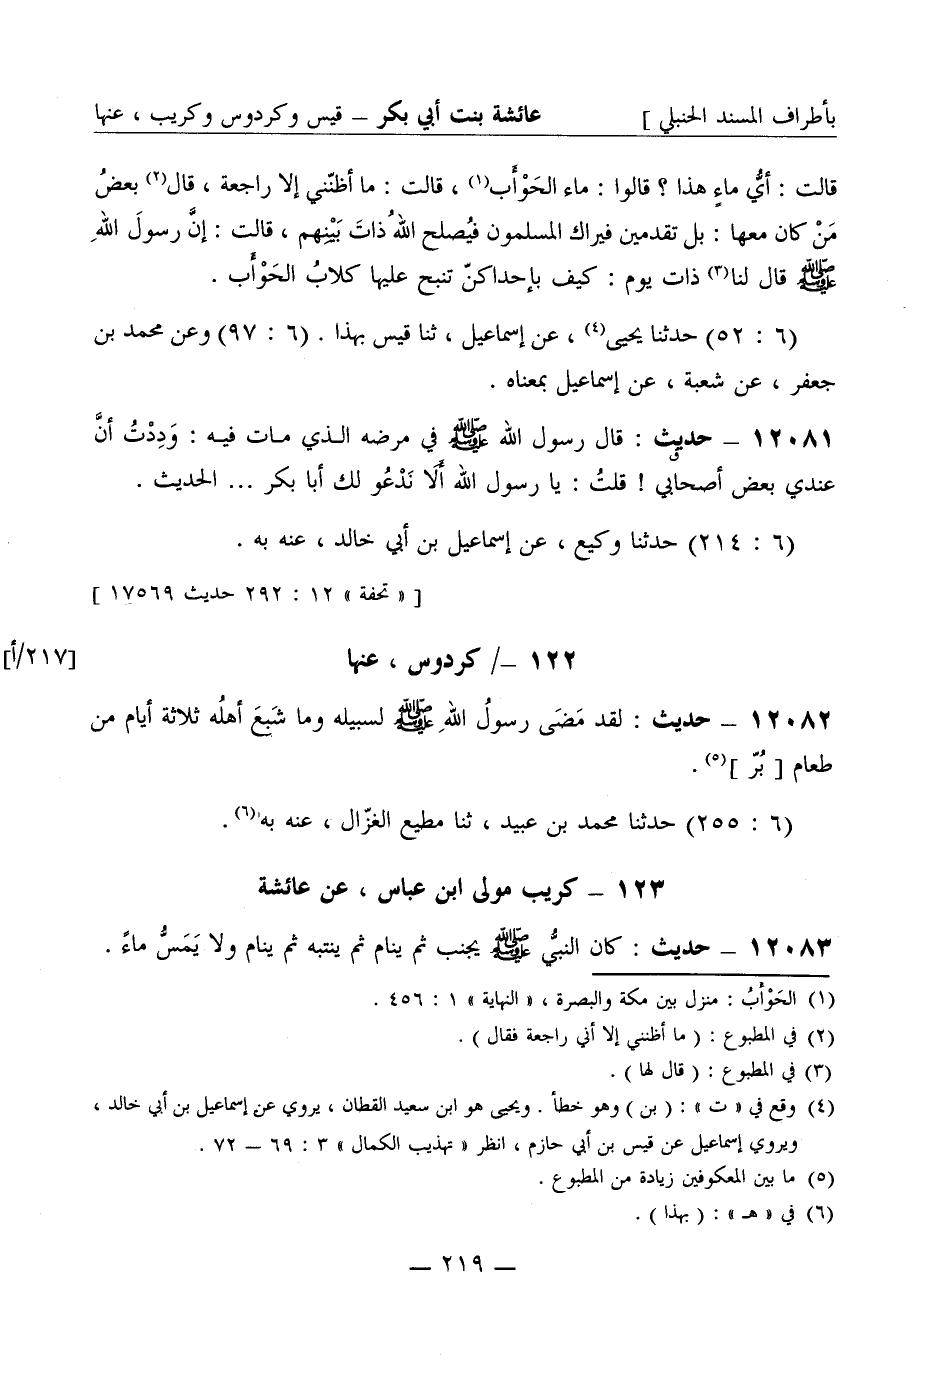 بأطراف المسند الحنبلي ] عائشة بنت أبي بكر – قيس وكردوس وكريب ، عنها
قالت : أيُّ ماءٍ هذا ؟ قالوا : ماء الحَوْأَب(١) ، قالت : ما أظنّني إلا راجعة ، قال(٢) بعضُ
مَنْ كان معها : بل تقدمين فيراك المسلمون فيُصلح اللهُ ذاتَ بَيْنِهم ، قالت : إنَّ رسولَ اللهِ
ﷺ قال لنا(٣) ذات يوم : كيف بإحداكنّ تنبح عليها كلابُ الحَوْأَب .
(٦ : ٥٢) حدثنا يحيى(٤) ، عن إسماعيل ، ثنا قيس بهذا . (٦ : ٩٧) وعن محمد بن
جعفر ، عن شعبة ، عن إسماعيل بمعناه .
١٢٠٨١ – حديث : قال رسول الله ﷺ في مرضه الذي مات فيه : وَدِدْتُ أنَّ
عندي بعض أصحابي ! قلتُ : يا رسول الله أَلَا نَدْعُو لك أبا بكر ... الحديث .
(٦ : ٢١٤) حدثنا وكيع ، عن إسماعيل بن أبي خالد ، عنه به .
[ « تحفة » ١٢ : ٢٩٢ حديث ١٧٥٦٩ ]
١٢٢ –/ كردوس ، عنها [٢١٧/أ]
١٢٠٨٢ – حديث : لقد مَضَى رسولُ اللهِ ﷺ لسبيله وما شَبِعَ أهلُه ثلاثة أيام من
طعام [ بُرّ ](٥) .
(٦ : ٢٥٥) حدثنا محمد بن عبيد ، ثنا مطيع الغزّال ، عنه به(٦) .
١٢٣ – كريب مولى ابن عباس ، عن عائشة
١٢٠٨٣ – حديث : كان النبيُّ ﷺ يجنب ثم ينام ثم ينتبه ثم ينام ولا يَمَسُّ ماءً .
(١) الحَوْأَبُ : منزل بين مكة والبصرة ، « النهاية » ١ : ٤٥٦ .
(٢) في المطبوع : ( ما أظنني إلا أني راجعة فقال ) .
(٣) في المطبوع : ( قال لها ) .
(٤) وقع في « ت » : ( بن ) وهو خطأ . ويحيى هو ابن سعيد القطان ، يروي عن إسماعيل بن أبي خالد ،
ويروي إسماعيل عن قيس بن أبي حازم ، انظر « تهذيب الكمال » ٣ : ٦٩ – ٧٢ .
(٥) ما بين المعكوفين زيادة من المطبوع .
(٦) في « هـ » : ( بهذا ) .
– ٢١٩ –